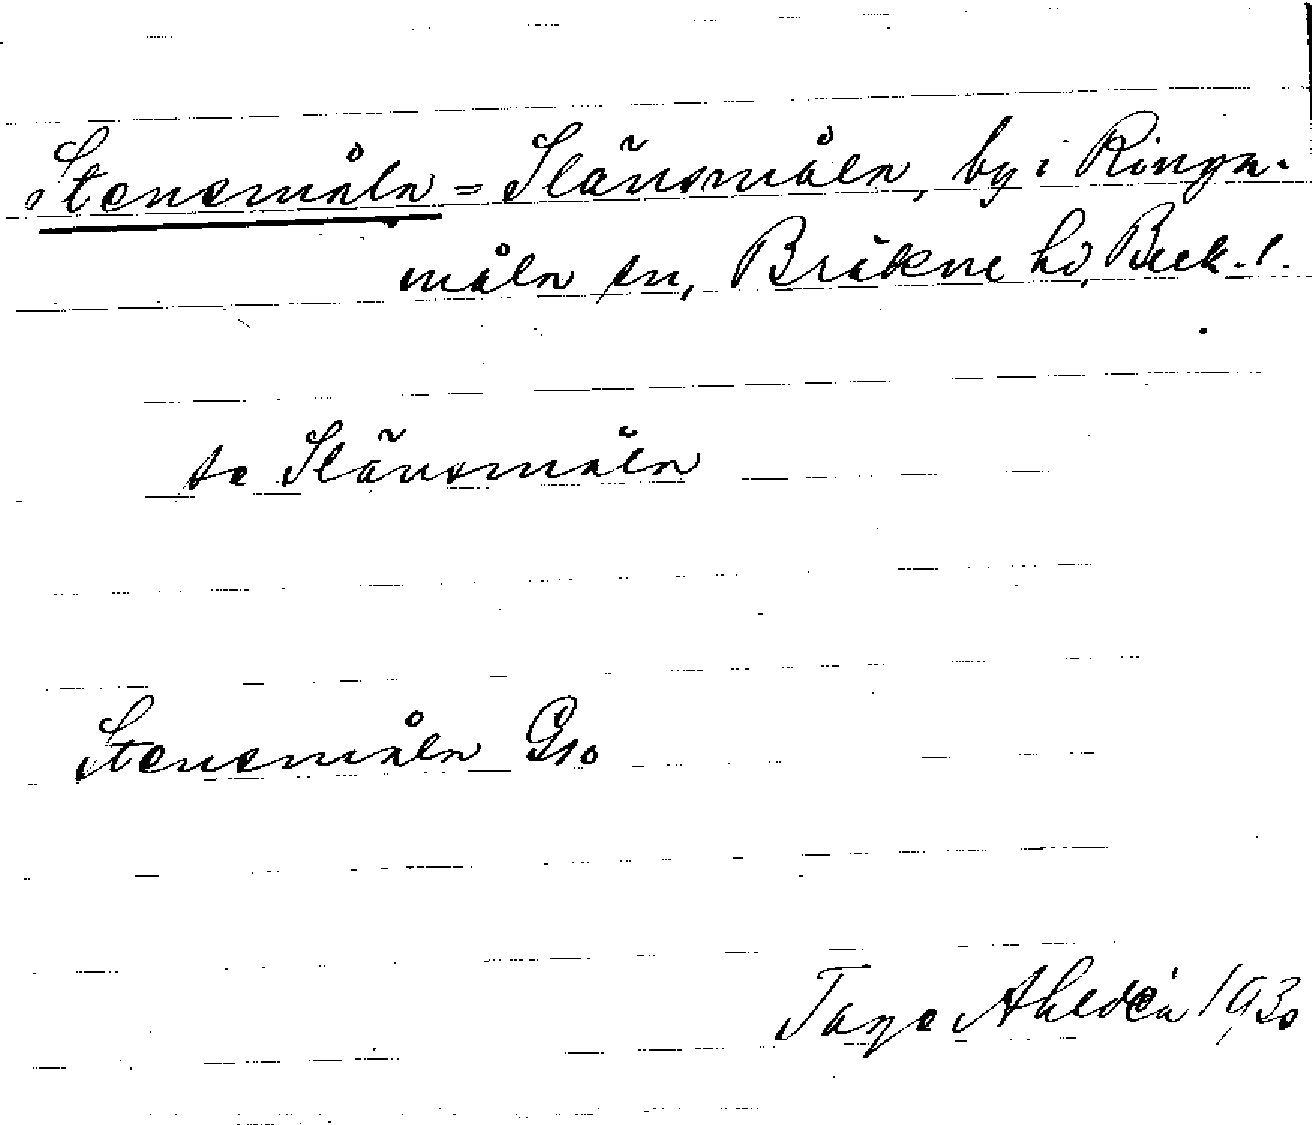 Stenemåla = Slänsmåla, by i Ringa-
måla sn, Bräkne hd, Blek. l.
se Slänsmåla
Stenemåla Gs
Tage Ahldén 1930